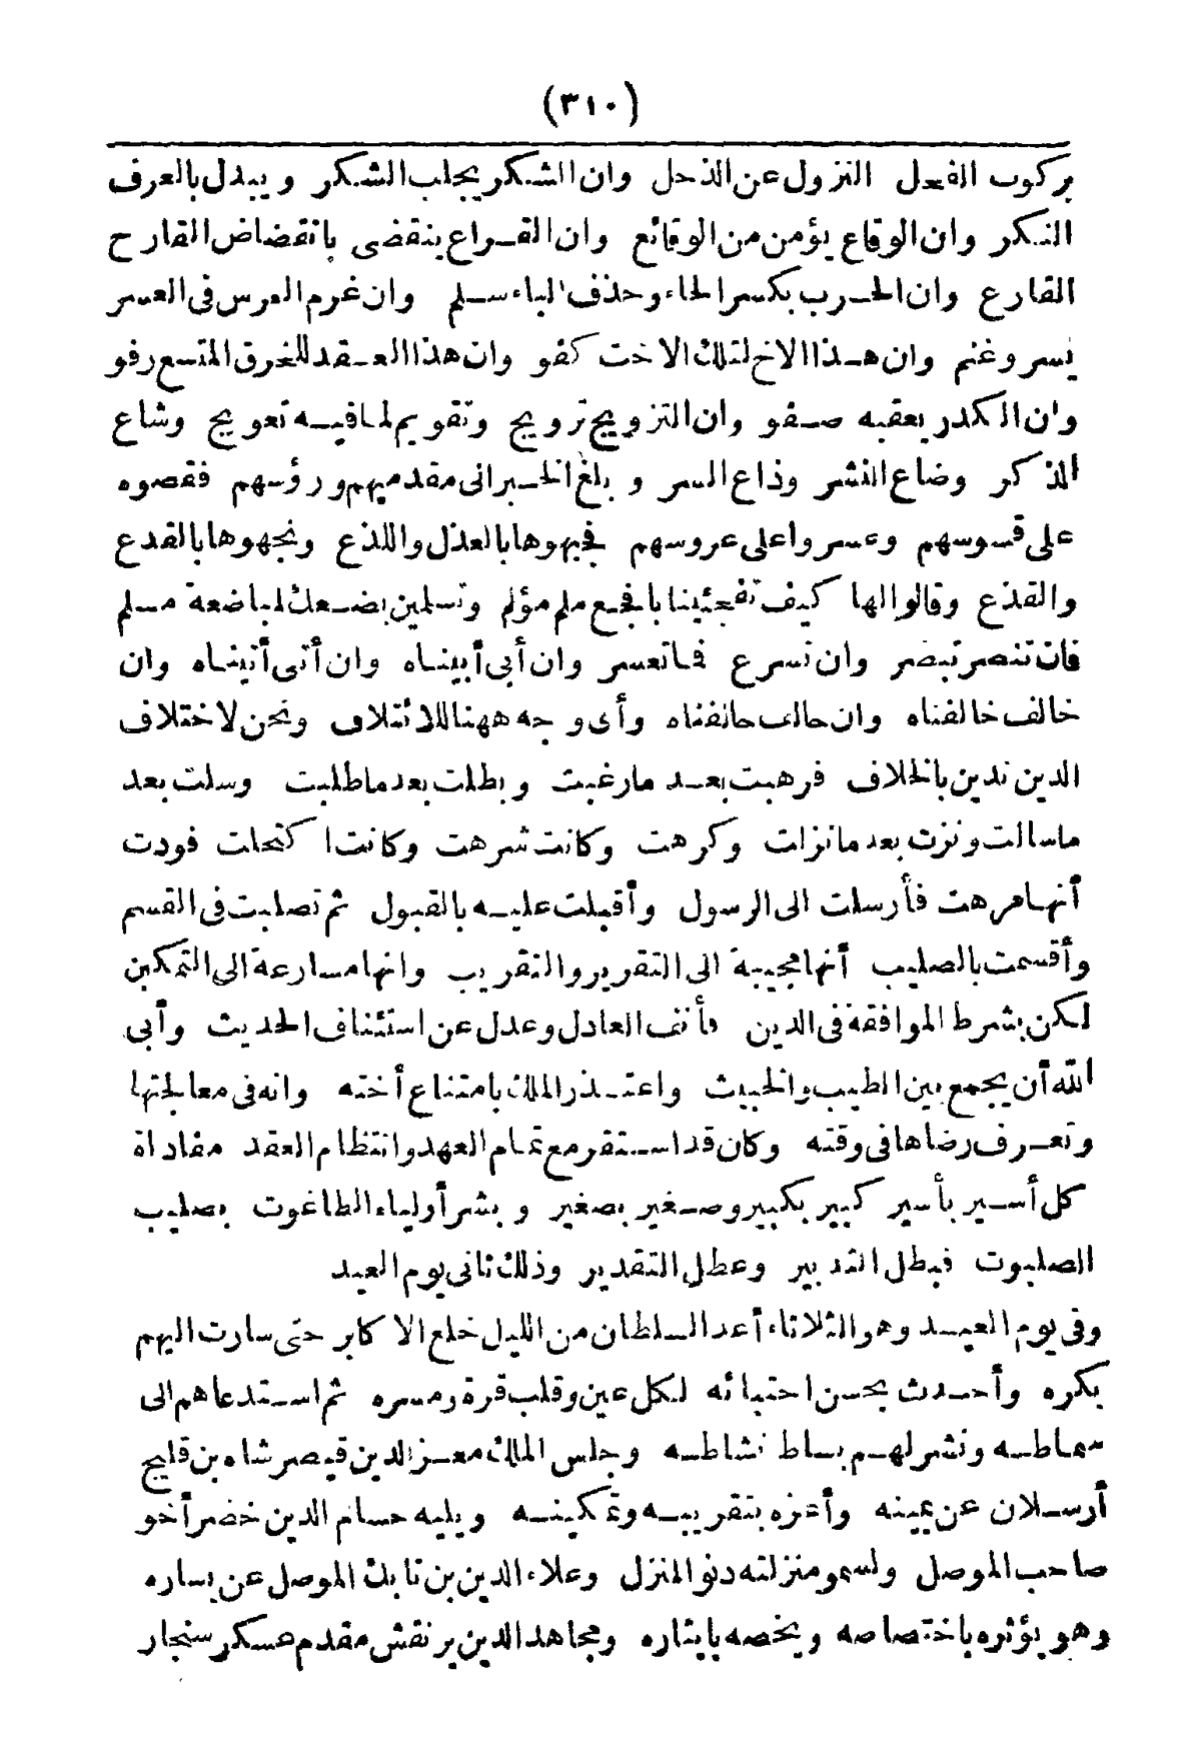 (٣١٠)
بركوب الفحل النزول عن الذحل وان الشكر يجلب الشكر ويبدل بالعرف
النكر وان الوقاع يؤمن من الوقائع وان القراع ينقضى بانقضاض القارح
القارع وان الحرب بكسر الحاء وحذف الباء سلم وان غرم العرس فى العسر
يسر وغنم وان هذا الاخ لتلك الاخت كفو وان هذا العقد للخرق المتسع رفو
وان الكدر يعقبه صفو وان التزويج ترويج وتقويم لما فيه تعويج وشاع
الذكر وضاع النشر وذاع السر وبلغ الخبر الى مقدميهم ورؤسهم فقصوه
على قسوسهم وعسروا على عروسهم فجبهوها بالعذل واللذع ونجهوها بالقدع
والقذع وقالوا لها كيف تفجئينا بالفجع ملم مؤلم وتسلمين بضعك لمباضعة مسلم
فان تنصر تبصر وان تسرع فما تعسر وان أبى أبيناه وان أتى أتيناه وان
خالف خالفناه وان حالف حالفناه وأى وجه ههنا للائتلاف ونحن لاختلاف
الدين ندين بالخلاف فرهبت بعد ما رغبت وبطلت بعد ما طلبت وسلت بعد
ما سالت ونزت بعد ما نزلت وكرهت وكانت شرهت وكانت اكتحلت فودت
أنها مرهت فأرسلت الى الرسول وأقبلت عليه بالقبول ثم تصلبت فى القسم
وأقسمت بالصليب أنها مجيبة الى التقرير والتقريب وانها مسارعة الى التمكين
لكن بشرط الموافقة فى الدين فأنف العادل وعدل عن استئناف الحديث وأبى
الله أن يجمع بين الطيب والخبيث واعتذر الملك بامتناع أخته وانه فى معالجتها
وتعرف رضاها فى وقته وكان قد استقر مع تمام العهد وانتظام العقد مفاداة
كل أسير بأسير كبير بكبير وصغير بصغير وبشر أولياء الطاغوت بصليب
الصلبوت فبطل التدبير وعطل التقدير وذلك ثانى يوم العيد
وفى يوم العيد وهو الثلاثاء أعد السلطان من الليل خلع الاكابر حتى سارت اليهم
بكره وأحدث بحسن احتبائه لكل عين وقلب قرة ومسره ثم استدعاهم الى
سماطه ونشر لهم بساط نشاطه وجلس الملك معز الدين قيصر شاه بن قليج
أرسلان عن يمينه وأعزه بتقريبه وتمكينه ويليه حسام الدين خضر أخو
صاحب الموصل ولسمو منزلته دنو المنزل وعلاء الدين بن تابك الموصل عن يساره
وهو يؤثره باختصاصه ويخصه بايثاره ومجاهد الدين يرنقش مقدم عسكر سنجار